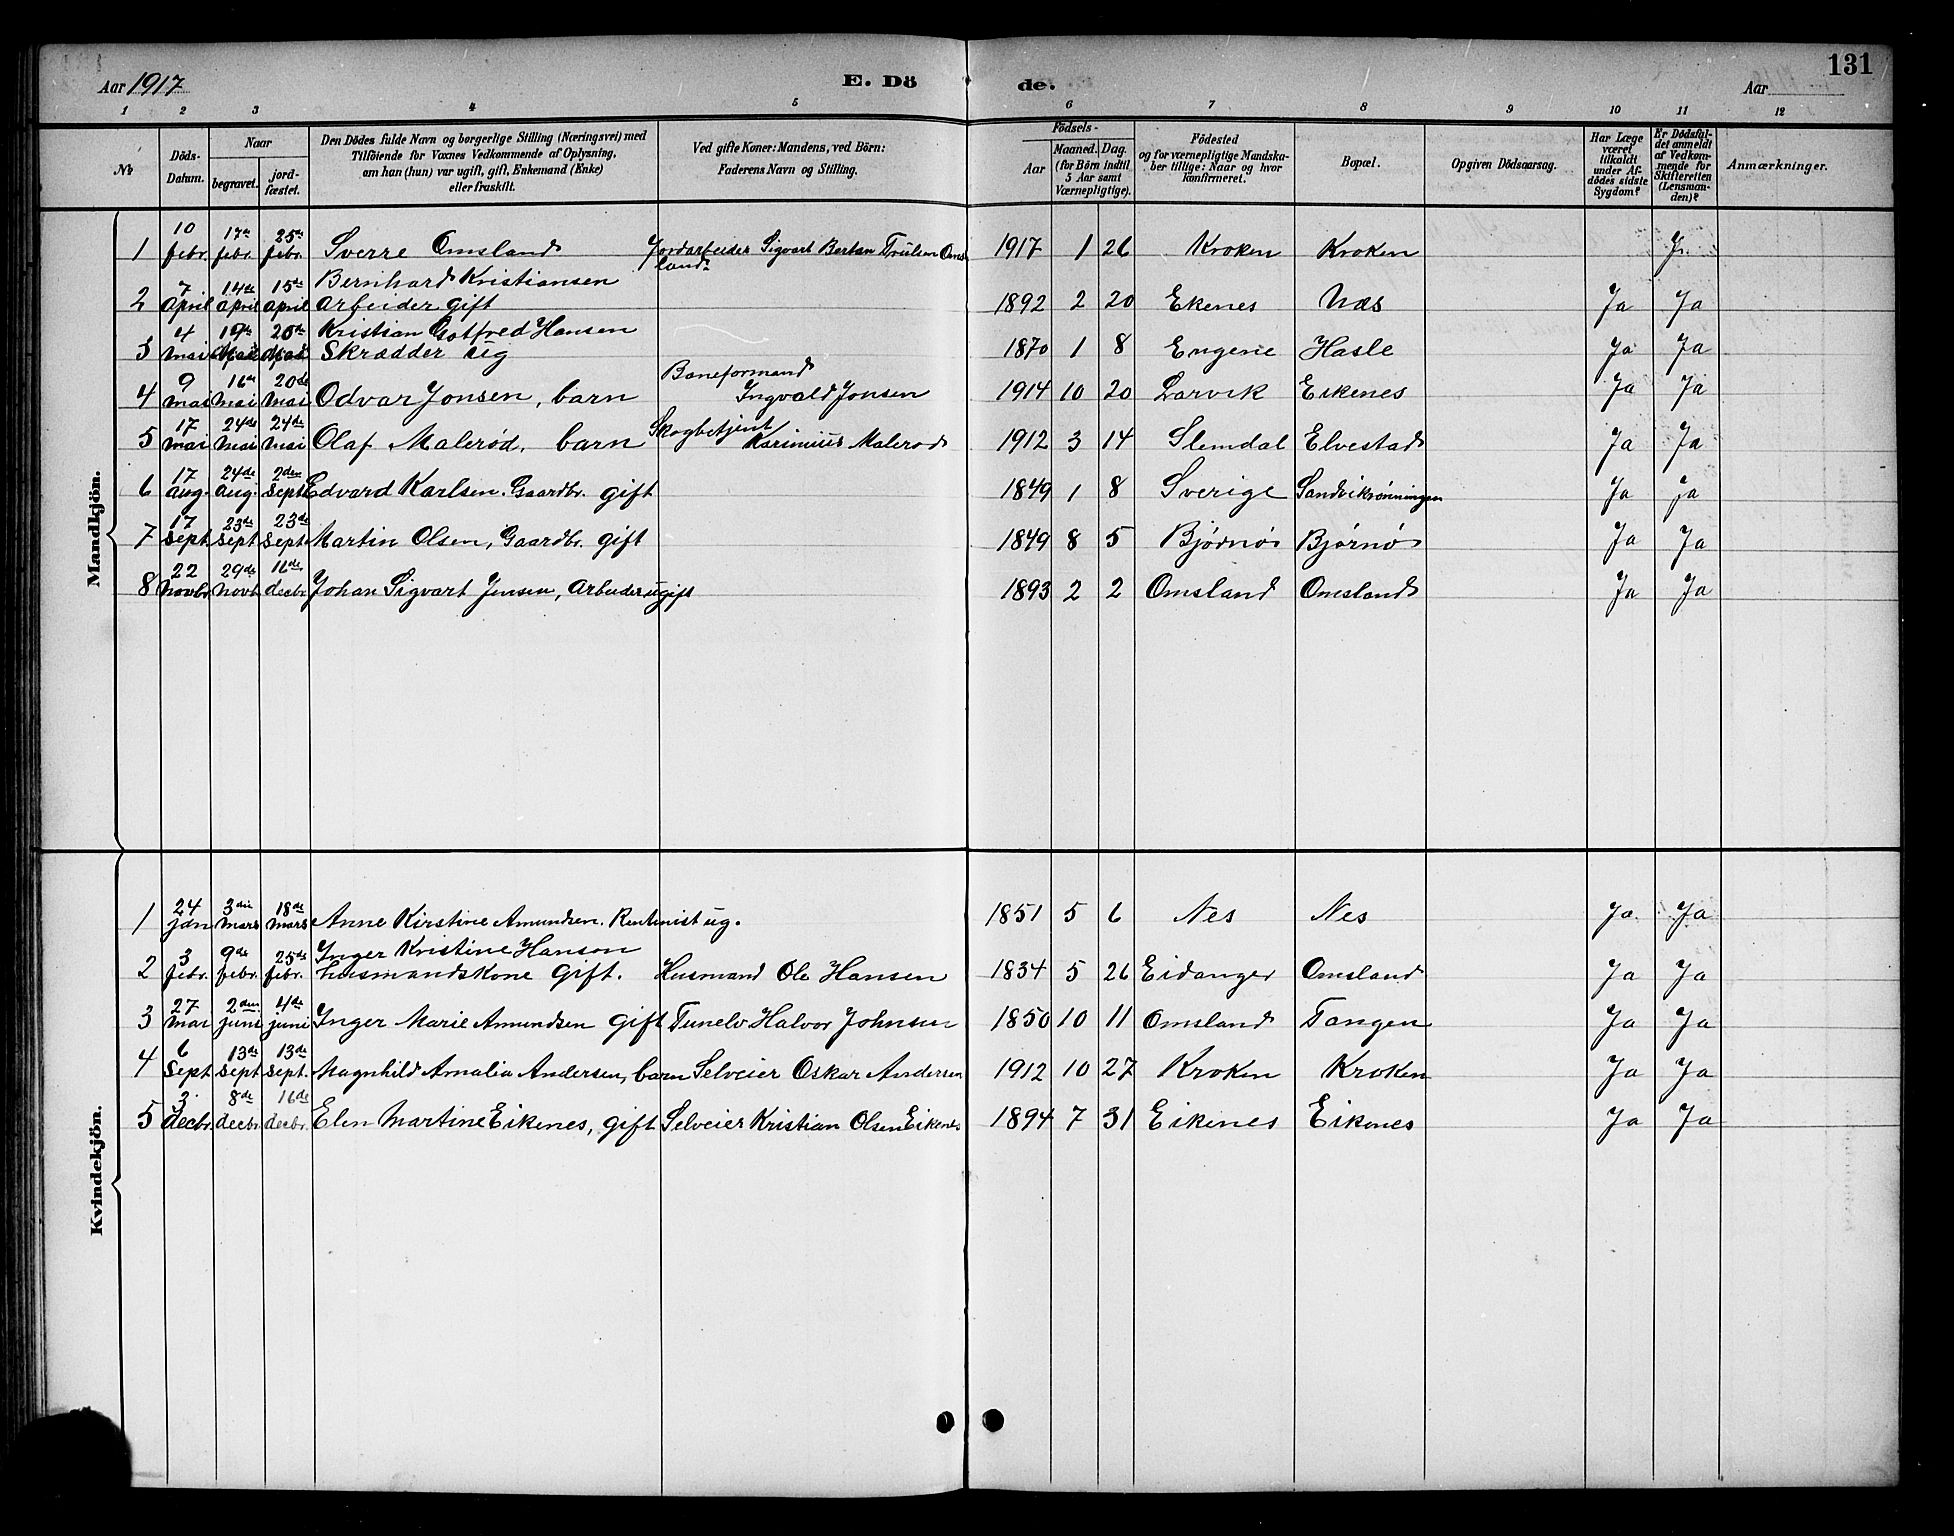 Aar 1917 E. Dö de. Aar 131
1 2 3 4 5 6 7 8 9 10 11 12
No Döds-Datum. Naar begravet. jordfæstet. Den Dödes fulde Navn og borgerlige Stilling (Næringsvei) med Tilföiende for Voxnes Vedkommende af Oplysning, om han (hun) var ugift, gift, Enkemand (Enke) eller fraskilt. Ved gifte Koner: Mandens, ved Börn: Faderens Navn og Stilling. Födsels- Aar Maaned. Dag. (for Börn indtil 5 Aar samt Værnepligtige). Födested og for værnepligtige Mandskaber tillige: Naar og hvor konfirmeret. Bopæl. Opgiven Dödsaarsag. Har Læge været tilkaldt under Afdödes sidste Sygdom? Er Dödsfaldet anmeldt af Vedkommende for Skifteretten (Lensmanden)? Anmærkninger.
Mandkjön.
1 10 febr. 17de febr. 25de febr. Sverre Omsland Jordarbeider Sigvart Bertan Trulsen Omsland 1917 1 26 Kroken Kroken Ja
2 7 April 14de April 15de April Bernhard Kristiansen arbeider gift 1892 2 20 Ekenes Næs Ja Ja
3 4 mai 19de Mai 20de Mai Kristian Gotfred Hansen Skrædder ug 1870 1 8 Engene Hasle Ja Ja
4 9 mai 16de mai 20de mai Odvar Jonsen, barn Baneformand Ingvald Jonsen 1914 10 20 Larvik Eikenes Ja Ja
5 17 mai 24de mai 24de mai Olaf Malerød, barn Skogbetjent Karinius Malerod 1912 3 14 Slemdal Elvestad Ja Ja
6 17 aug. 24de aug. 2den Sept Edvard Karlsen. Gaardbr. gift 1849 1 8 Sverige Sandviksrønningen Ja ja
7 17 Sept. 23de Sept 23de Sept Martin Olsen, Gaardbr. gift 1849 8 5 Bjørnø Bjørnø Ja Ja
8 22 Novbr 29de Novb 16de decbr Johan Sigvart Jensen, Arbeider ugift 1893 2 2 Omsland Omsland Ja Ja
Kvindekjön.
1 24 jan 3die mars 18de mars Anne Kirstine Amundsen. Rentenist ug. 1851 5 6 Nes Nes Ja Ja
2 3 febr. 9de febr. 25de febr. Inger Kristine Hanson husmandskone gift. Husmand Ole Hansen 1834 5 26 Eidanger Omsland Ja Ja
3 27 Mai 2den juni 4de juni Inger Marie Amundsen gift Tunelv Halvor Johnsen 1850 10 11 Omsland Tangen Ja Ja
4 6 Sept 13de Sept 13de Sept. Magnhild Amalia Andersen, barn Selveier Oskar Andersen 1912 10 27 Kroken Kroken Ja Ja
5 3. decbr. 8de decbr. 16de decbr. Elen Martine Eikenes, gift Selveier Kristian Olsen Eikenes 1894 7 31 Eikenes Eikenes Ja Ja